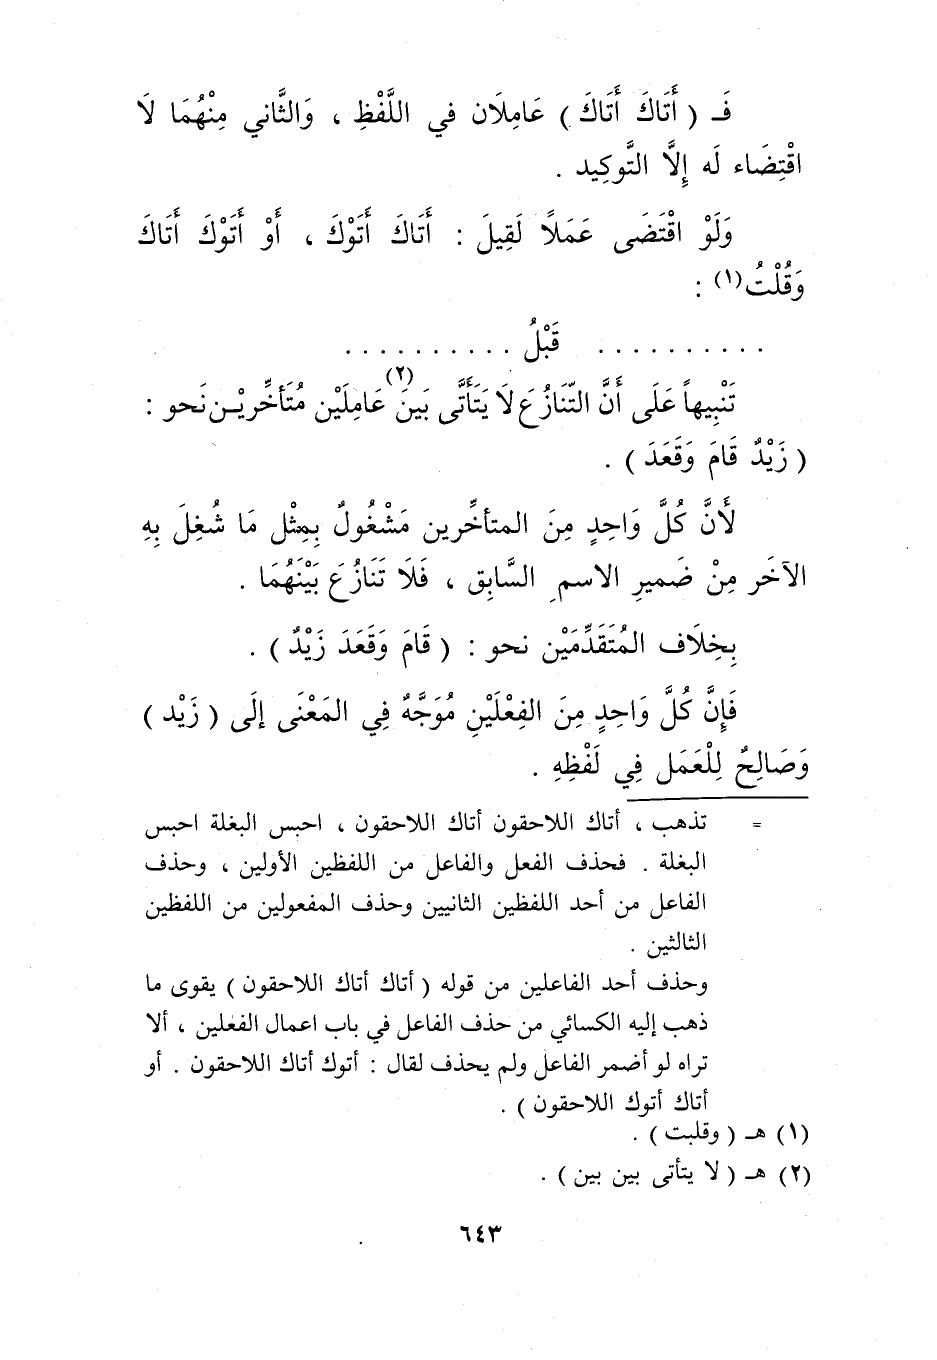 فَـ ( أَتَاكَ أَتَاكَ ) عَامِلَان في اللَّفْظِ ، وَالثَّاني مِنْهُمَا لَا
اقْتِضَاء لَه إِلَّا التَّوكِيد .
وَلَوْ اقْتَضَى عَمَلًا لَقِيلَ : أَتَاكَ أَتَوْكَ ، أَوْ أَتَوْكَ أَتَاكَ
وَقُلْتُ(١) :
. . . . . . . . . . قَبْلُ . . . . . . . . . .
تَنْبِيهاً عَلَى أَنَّ التّنَازُعَ لَا يَتَأَتَّى بَينَ(٢) عَامِلَيْن مُتَأخِّرِيْـن نَحو :
( زَيْدٌ قَامَ وَقَعَدَ ) .
لَأَنَّ كُلَّ وَاحِدٍ مِنَ المتأخِّرين مَشْغُولٌ بِمِثْل مَا شُغِلَ بِهِ
الآخَر مِنْ ضَميرِ الاسمِ السَّابِق ، فَلَا تَنَازُعَ بَيْنَهُمَا .
بِخِلَاف المُتَقَدِّمَيْن نحو : ( قَامَ وَقَعَدَ زَيْدٌ ) .
فَإِنَّ كُلَّ وَاحِدٍ مِنَ الفِعْلَيْنِ مُوَجَّهٌ فِي المَعْنَى إلَى ( زَيْد )
وَصَالِحٌ لِلْعَمَل فِي لَفْظِهِ .
= تذهب ، أتاك اللاحقون أتاك اللاحقون ، احبس البغلة احبس
البغلة . فحذف الفعل والفاعل من اللفظين الأولين ، وحذف
الفاعل من أحد اللفظين الثانيين وحذف المفعولين من اللفظين
الثالثين .
وحذف أحد الفاعلين من قوله ( أتاك أتاك اللاحقون ) يقوى ما
ذهب إليه الكسائي من حذف الفاعل في باب اعمال الفعلين ، ألا
تراه لو أضمر الفاعل ولم يحذف لقال : أتوك أتاك اللاحقون . أو
أتاك أتوك اللاحقون ) .
(١) هـ ( وقلبت ) .
(٢) هـ ( لا يتأتى بين بين ) .
٦٤٣